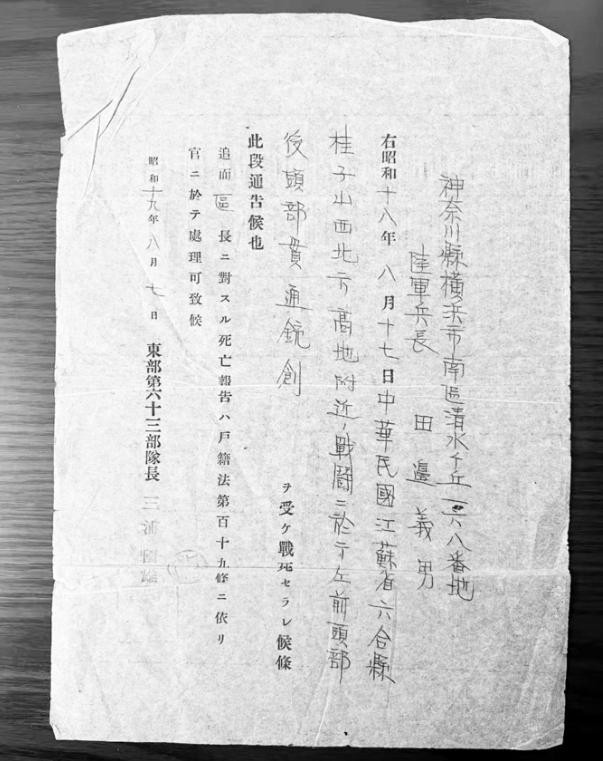 神奈川縣橫浜市南區清水ケ丘一六八番地
陸軍兵長 田邊義男
右昭和十八年八月十七日中華民國江蘇省六合縣
桂子山西北方高地附近ノ戰鬪ニ於テ左前頭部
後頭部貫通銃創ヲ受ケ戰死セラレ候條
此段通告候也
追而區長ニ對スル死亡報告ハ戸籍法第百十九條ニ依リ
官ニ於テ處理可致候
昭和十九年八月七日
東部第六十三部隊長 三浦